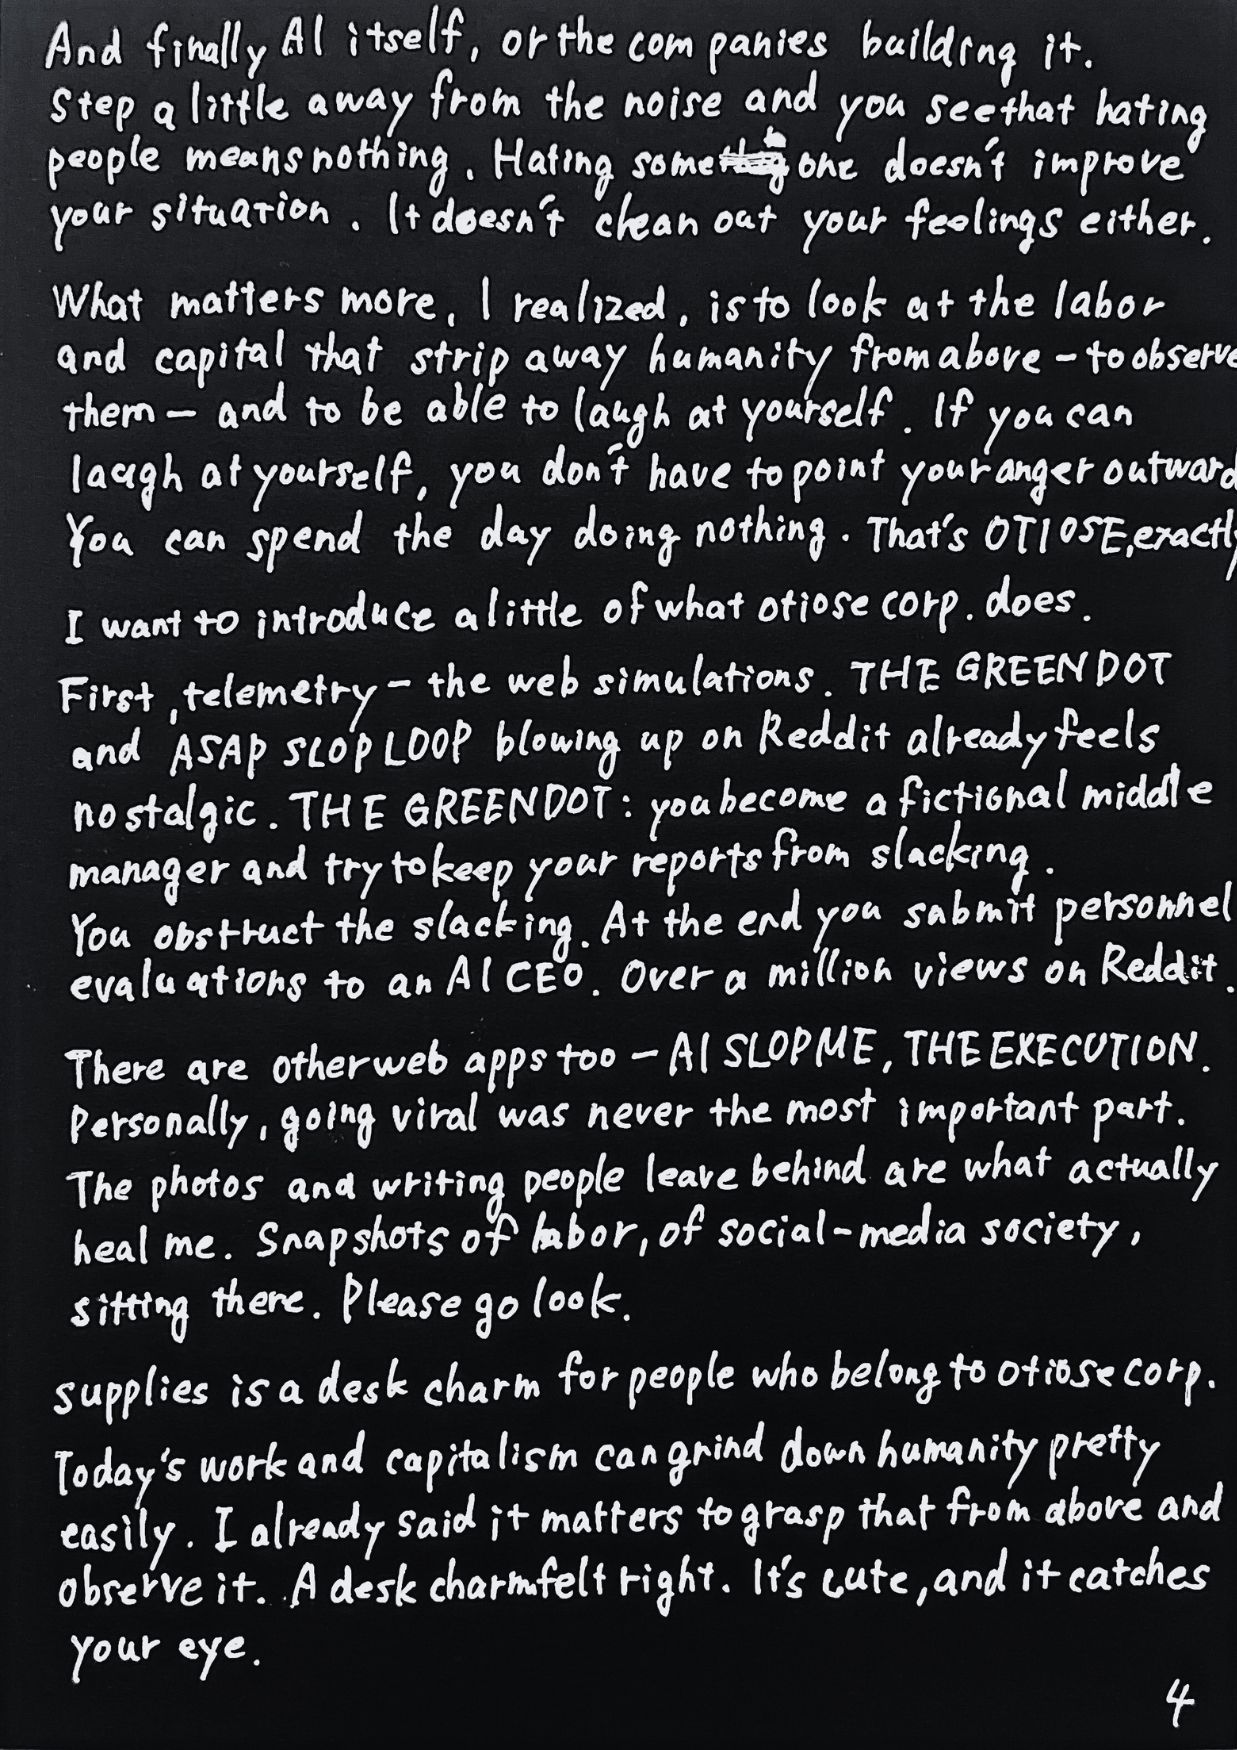 And finally AI itself, or the companies building it.
Step a little away from the noise and you see that hating
people means nothing. Hating someone doesn't improve
your situation. It doesn't clean out your feelings either.
What matters more, I realized, is to look at the labor
and capital that strip away humanity from above – to observe
them – and to be able to laugh at yourself. If you can
laugh at yourself, you don't have to point your anger outward
You can spend the day doing nothing. That's OTIOSE, exactly
I want to introduce a little of what otiose corp. does.
First, telemetry – the web simulations. THE GREEN DOT
and ASAP SLOP LOOP blowing up on Reddit already feels
nostalgic. THE GREEN DOT: you become a fictional middle
manager and try to keep your reports from slacking.
You obstruct the slacking. At the end you submit personnel
evaluations to an AI CEO. Over a million views on Reddit.
There are other web apps too – AI SLOP ME, THE EXECUTION.
Personally, going viral was never the most important part.
The photos and writing people leave behind are what actually
heal me. Snapshots of labor, of social-media society,
sitting there. Please go look.
supplies is a desk charm for people who belong to otiose corp.
Today's work and capitalism can grind down humanity pretty
easily. I already said it matters to grasp that from above and
observe it. A desk charm felt right. It's cute, and it catches
your eye.
4